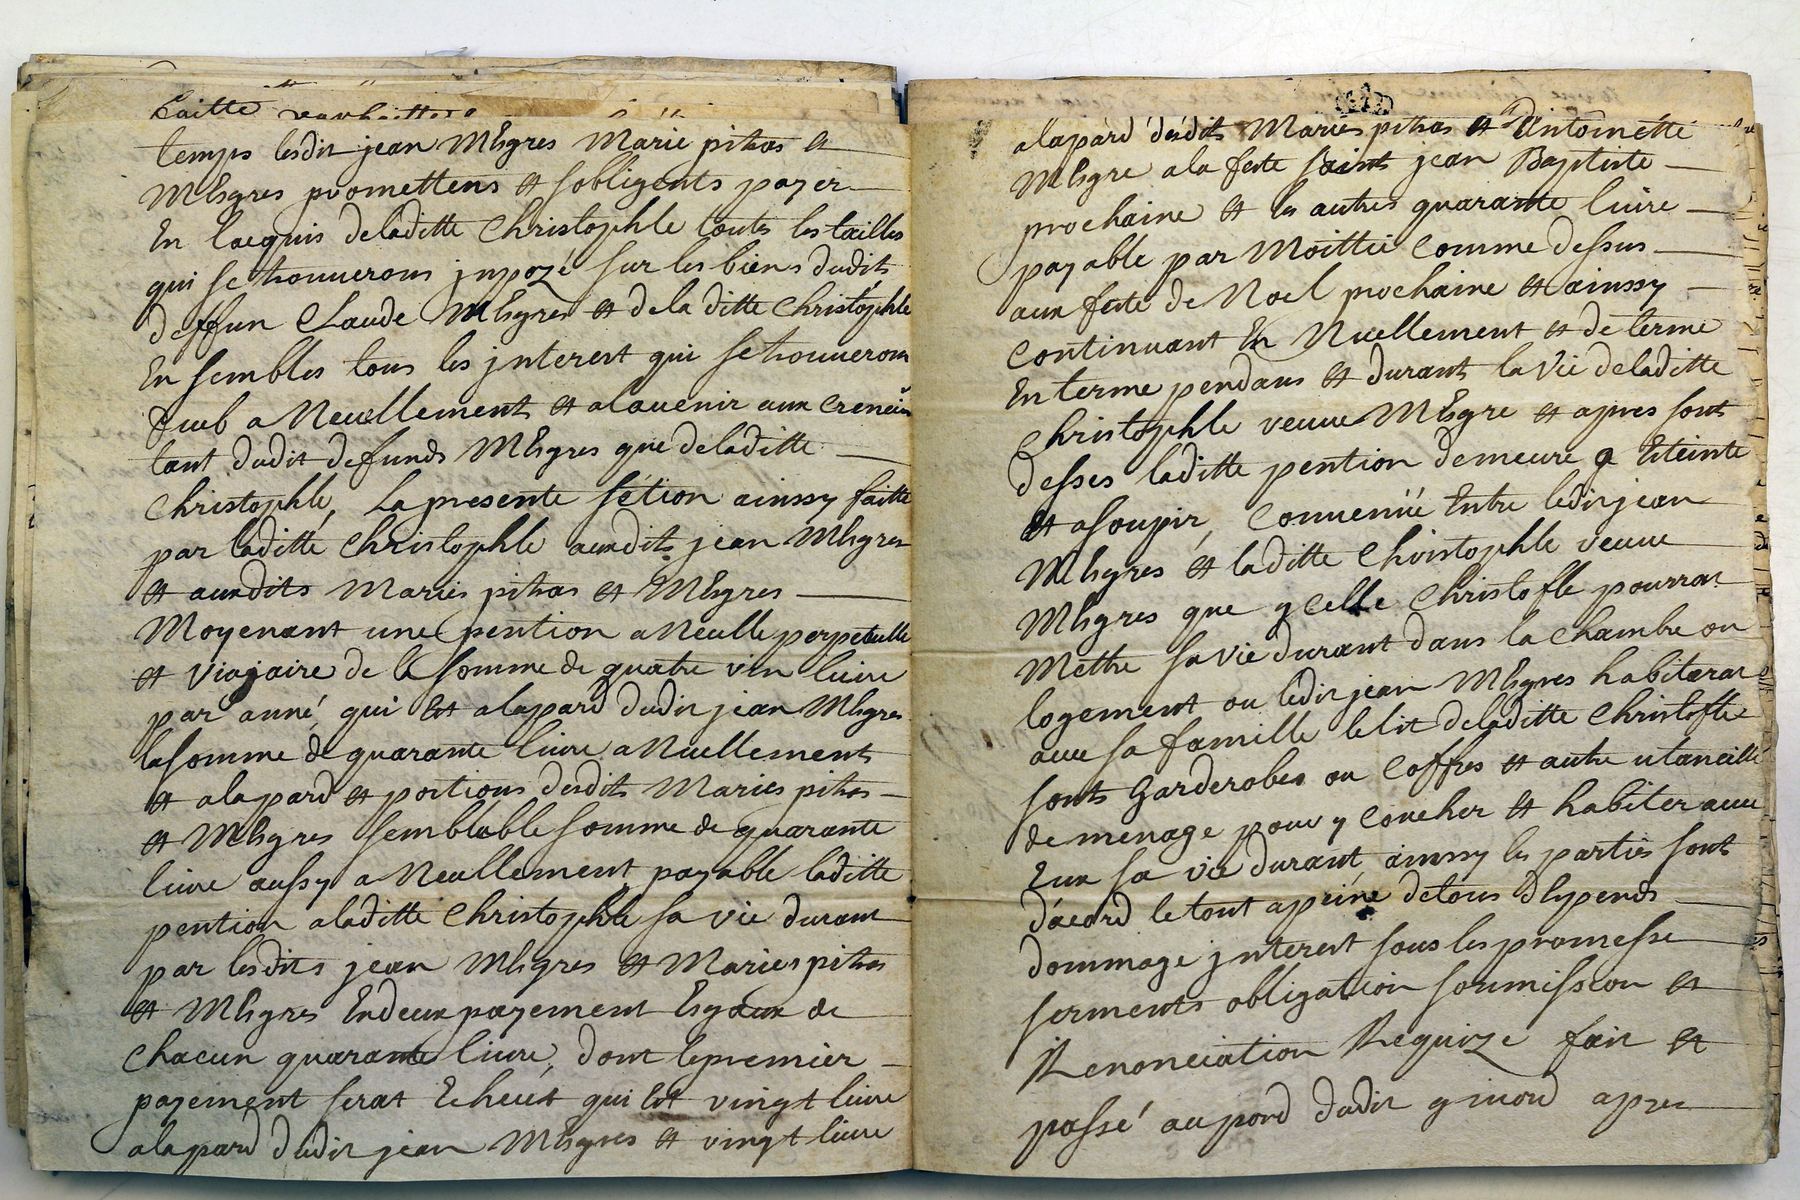 temps lesdit jean Mhgres Marie pitras et
Mhgres promettens et sobligents payer
En lacquis deladitte Christophle toutes les tailles
qui se trouuerons jnpozé sur les biens dudits
deffun Claude Mhgres et dela ditte Christophle
En sembles tous les jnterest qui se trouuerons
dueb a Neuellement et alauenir aux
tant dudit defunds Mhgres que deladitte
Christophle, La presente sétion ainssy faitte
par laditte Christophle auxdits jean Mhgres
et auxdits Maries pitras et Mhgres
Moyenant une pention a Neulle perpetuelle
et viagaire de la somme de quatre vin liure
par anné, qui Est alapard dudit jean Mhgres
la somme de quarante liure a Nuellement
et alapard et portions desdits Maries pitras
et Mhgres semblable somme de quarante
liure aussy a Neullement payable laditte
pention aladitte Christophle sa vie durant
par lesdits jean Mhgres et Maries pitras
et Mhgres En deux payement Egaux de
chacun quarante liure, dont le premier
payement serat Echeuët qui Est vingt liure
alapard dudit jean Mhgres et vingt liure
alapard desdits Maries pitras et Antoinette
Mhgre ala feste saint jean Baptiste
prochaine et les autres quarante liure
payable par Moittié Comme dessus
aux feste de Noel prochaine et ainssy
Continuant En Nuellement et de terme
En terme pendans et durant la vie deladitte
Christophle veuue Mhgre et apres sont
desses laditte pention demeure Eteinte
et asoupir, Conuenüe Entre ledit jean
Mhgres et laditte Christophle veuue
Mhgres que ycelle Christofle pourrat
Mettre sa vie durant dans la chambre ou
logement ou ledit jean Mhgres habiterat
auec sa famille le lit deladitte Christofle
sonts garderobes ou Coffres et autre utancille
de menage pour y Coucher et habiter auec
Eux sa vie durant, ainssy les parties sont
dácord le tout apeine detous dhpends
dommage jnterest sous les promesse
serments obligation soumission et
Renonciation Requize fait et
passé au pord dudit gniord apres